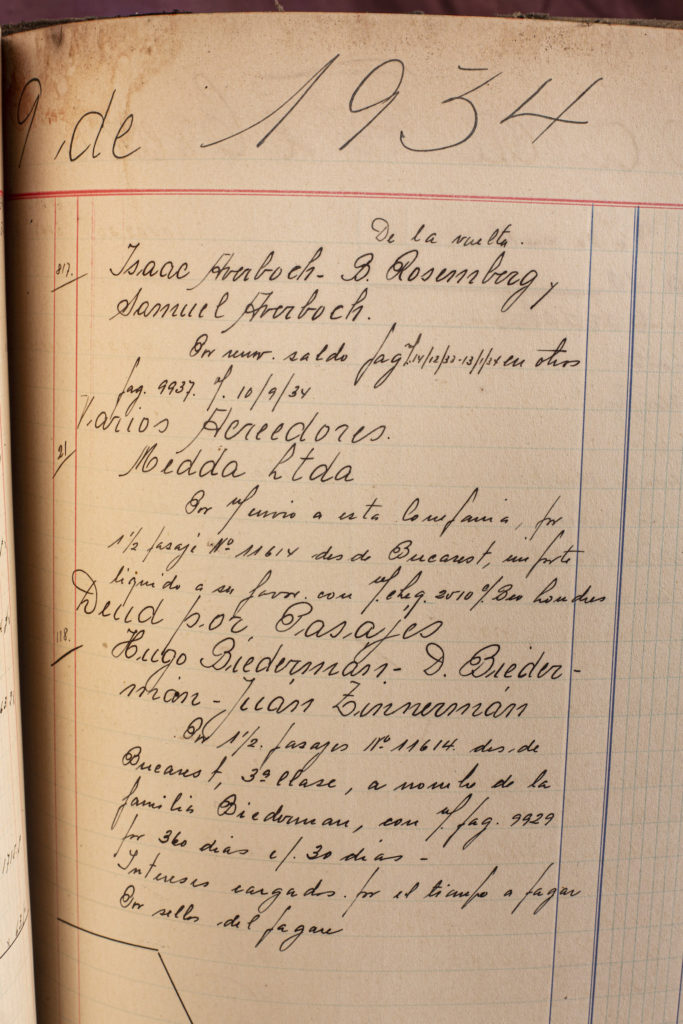 9, de 1934
De la vuelta.
817. Isaac Averboch - B. Rosemberg,
Samuel Averboch.
Por renov. saldo pag 14/12/33-13/1/34 en otros
pag. 9937. v/. 10/9/34
Varios Acreedores.
21 Medda Ltda
Por n/ envio a esta Compania, por
1 1/2 pasaje Nº 11614 desde Bucarest, importe
liquido a su favor. con n/. cheq. 2010 c/. Bco Londres
Deud por Pasajes
118. Hugo Biedermán - D. Bieder-
mán - Juán Zinnermán
Por 1 1/2. pasajes Nº 11614. desde
Bucarest, 3ª Clase, a nombre de la
familia Biederman, con n/. pag. 9929
por 360 dias c/. 30 dias -
Intereses cargados. por el tiempo a pagar
Por sellos del pagare